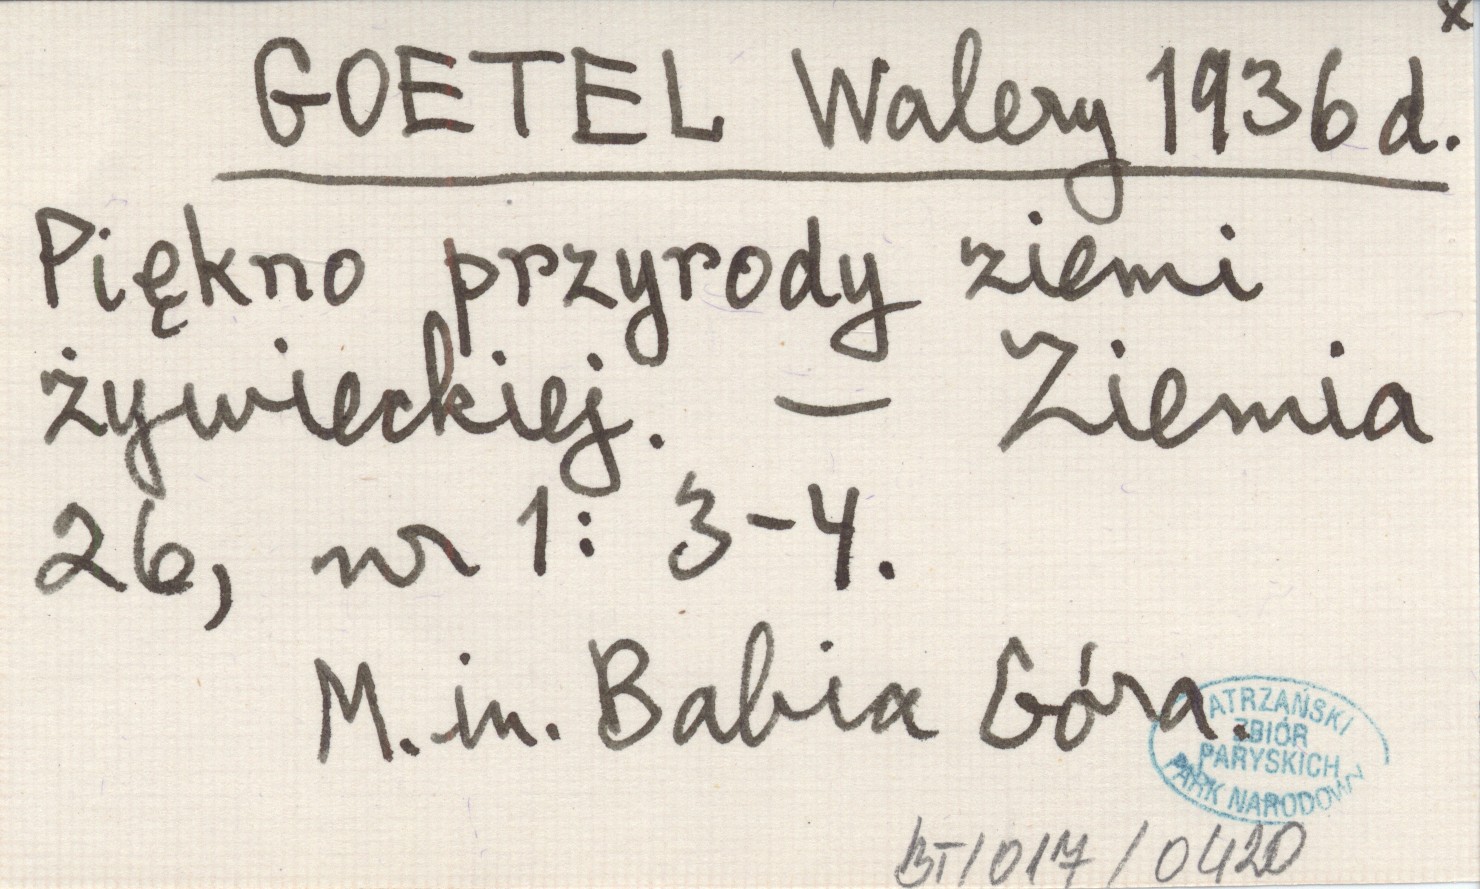 x
GOETEL Walery 1936 d.
Piękno przyrody ziemi
żywieckiej. — Ziemia
26, nr 1: 3-4.
M. in. Babia Góra.
TATRZAŃSKI
ZBIÓR
PARYSKICH
PARK NARODOWY
BT/017/0420